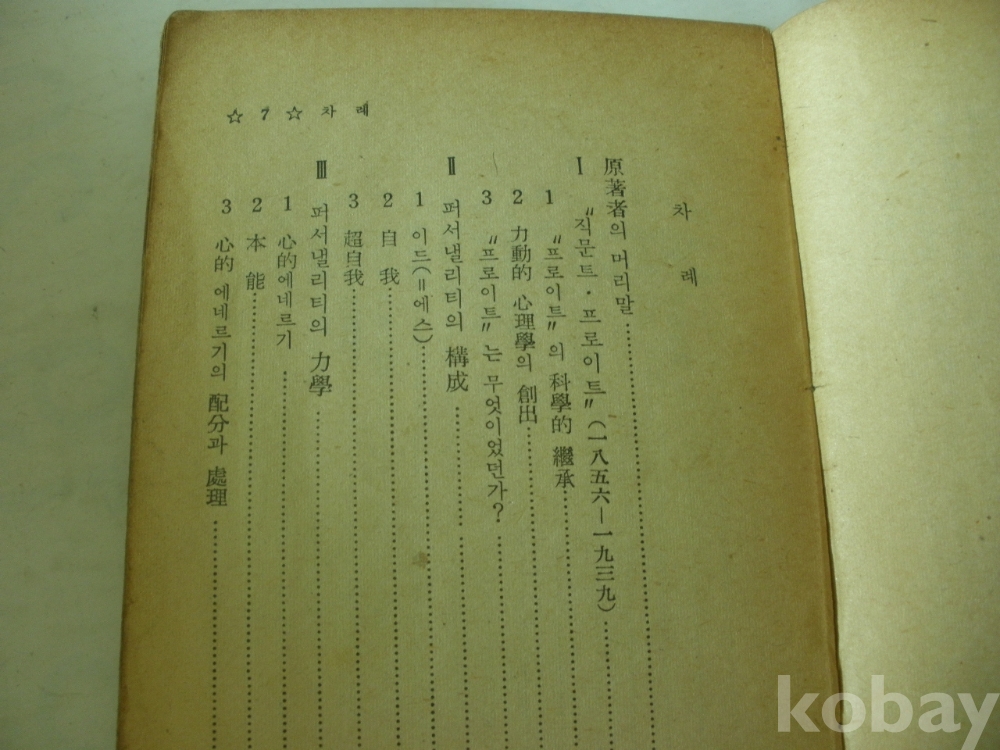 ☆ 7 ☆ 차 례
차 례
原著者의 머리말
Ⅰ "직문트·프로이트"(一八五六—一九三九)
1 "프로이트"의 科學的 繼承
2 力動的 心理學의 創出
3 "프로이트"는 무엇이었던가?
Ⅱ 퍼서낼리티의 構成
1 이드(=에스)
2 自我
3 超自我
Ⅲ 퍼서낼리티의 力學
1 心的에네르기
2 本能
3 心的 에네르기의 配分과 處理
kobay